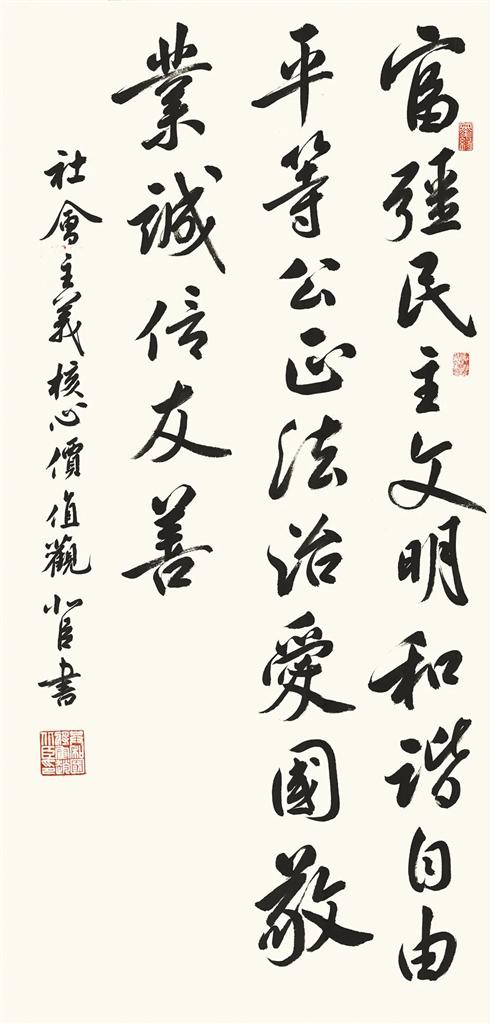 富彊民主文明和諧自由
平等公正法治愛國敬
業誠信友善
社會主義核心價值觀小臣書